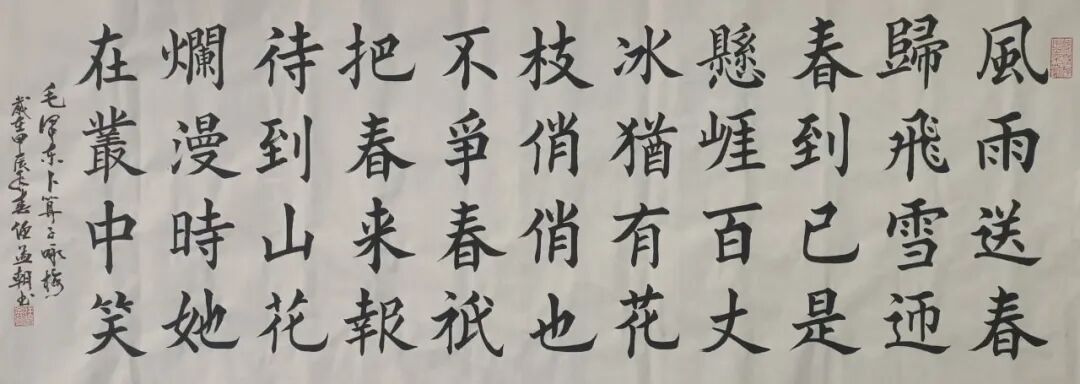 風雨送春
歸飛雪迊
春到已是
懸崕百丈
冰猶有花
枝俏俏也
不爭春祇
把春来報
待到山花
爛漫時她
在叢中笑
毛泽东卜算子咏梅
歲在甲辰春朝书